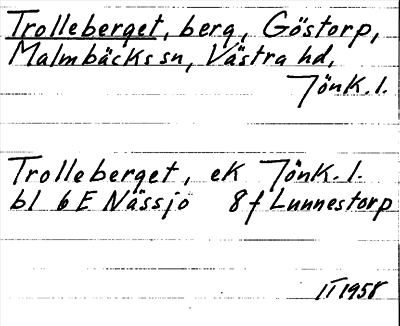 Trolleberget, berg, Göstorp,
Malmbäcks sn, Västra hd,
Jönk. l.
Trolleberget, ek Jönk. l.
bl 6E Nässjö 8f Lunnestorp
II 1958